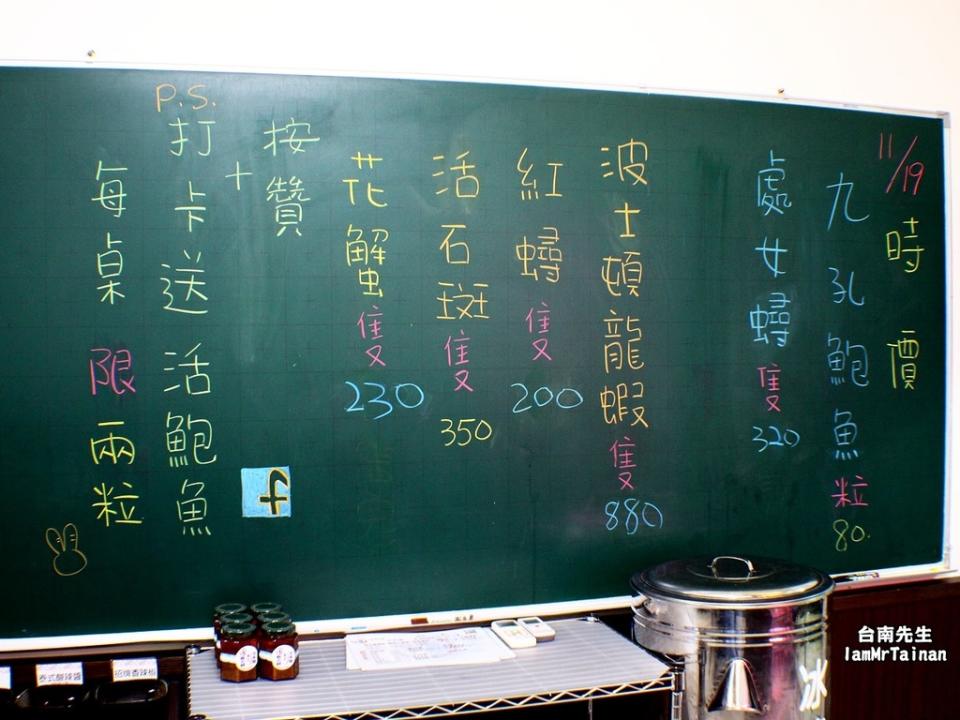 11/19時價
九孔鮑魚粒80.
處女蟳隻320
波士頓龍蝦隻880
紅蟳隻200
活石斑隻350
花蟹隻230
P.S.
按讚
+
打卡送活鮑魚
每桌限兩粒
泰式酸辣醬
招牌香辣椒
冰
台南先生
IamMrTainan